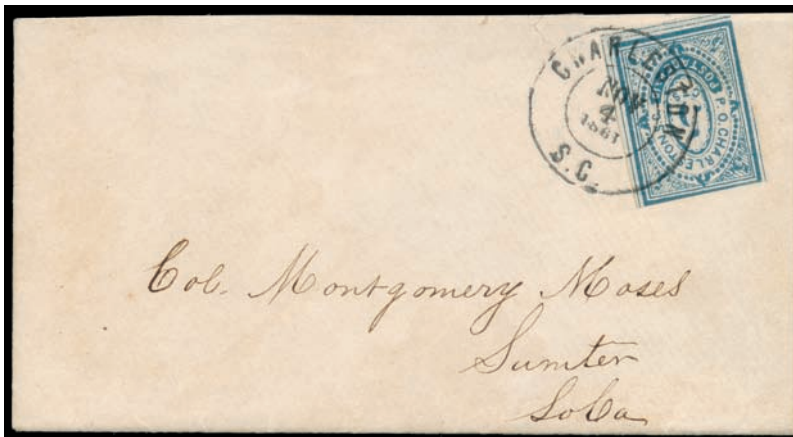 CHARLESTON
NOV
4
1861
S.C.
P.O. CHARLESTON
POSTA
5
Col. Montgomery Moses
Sumter
So Ca